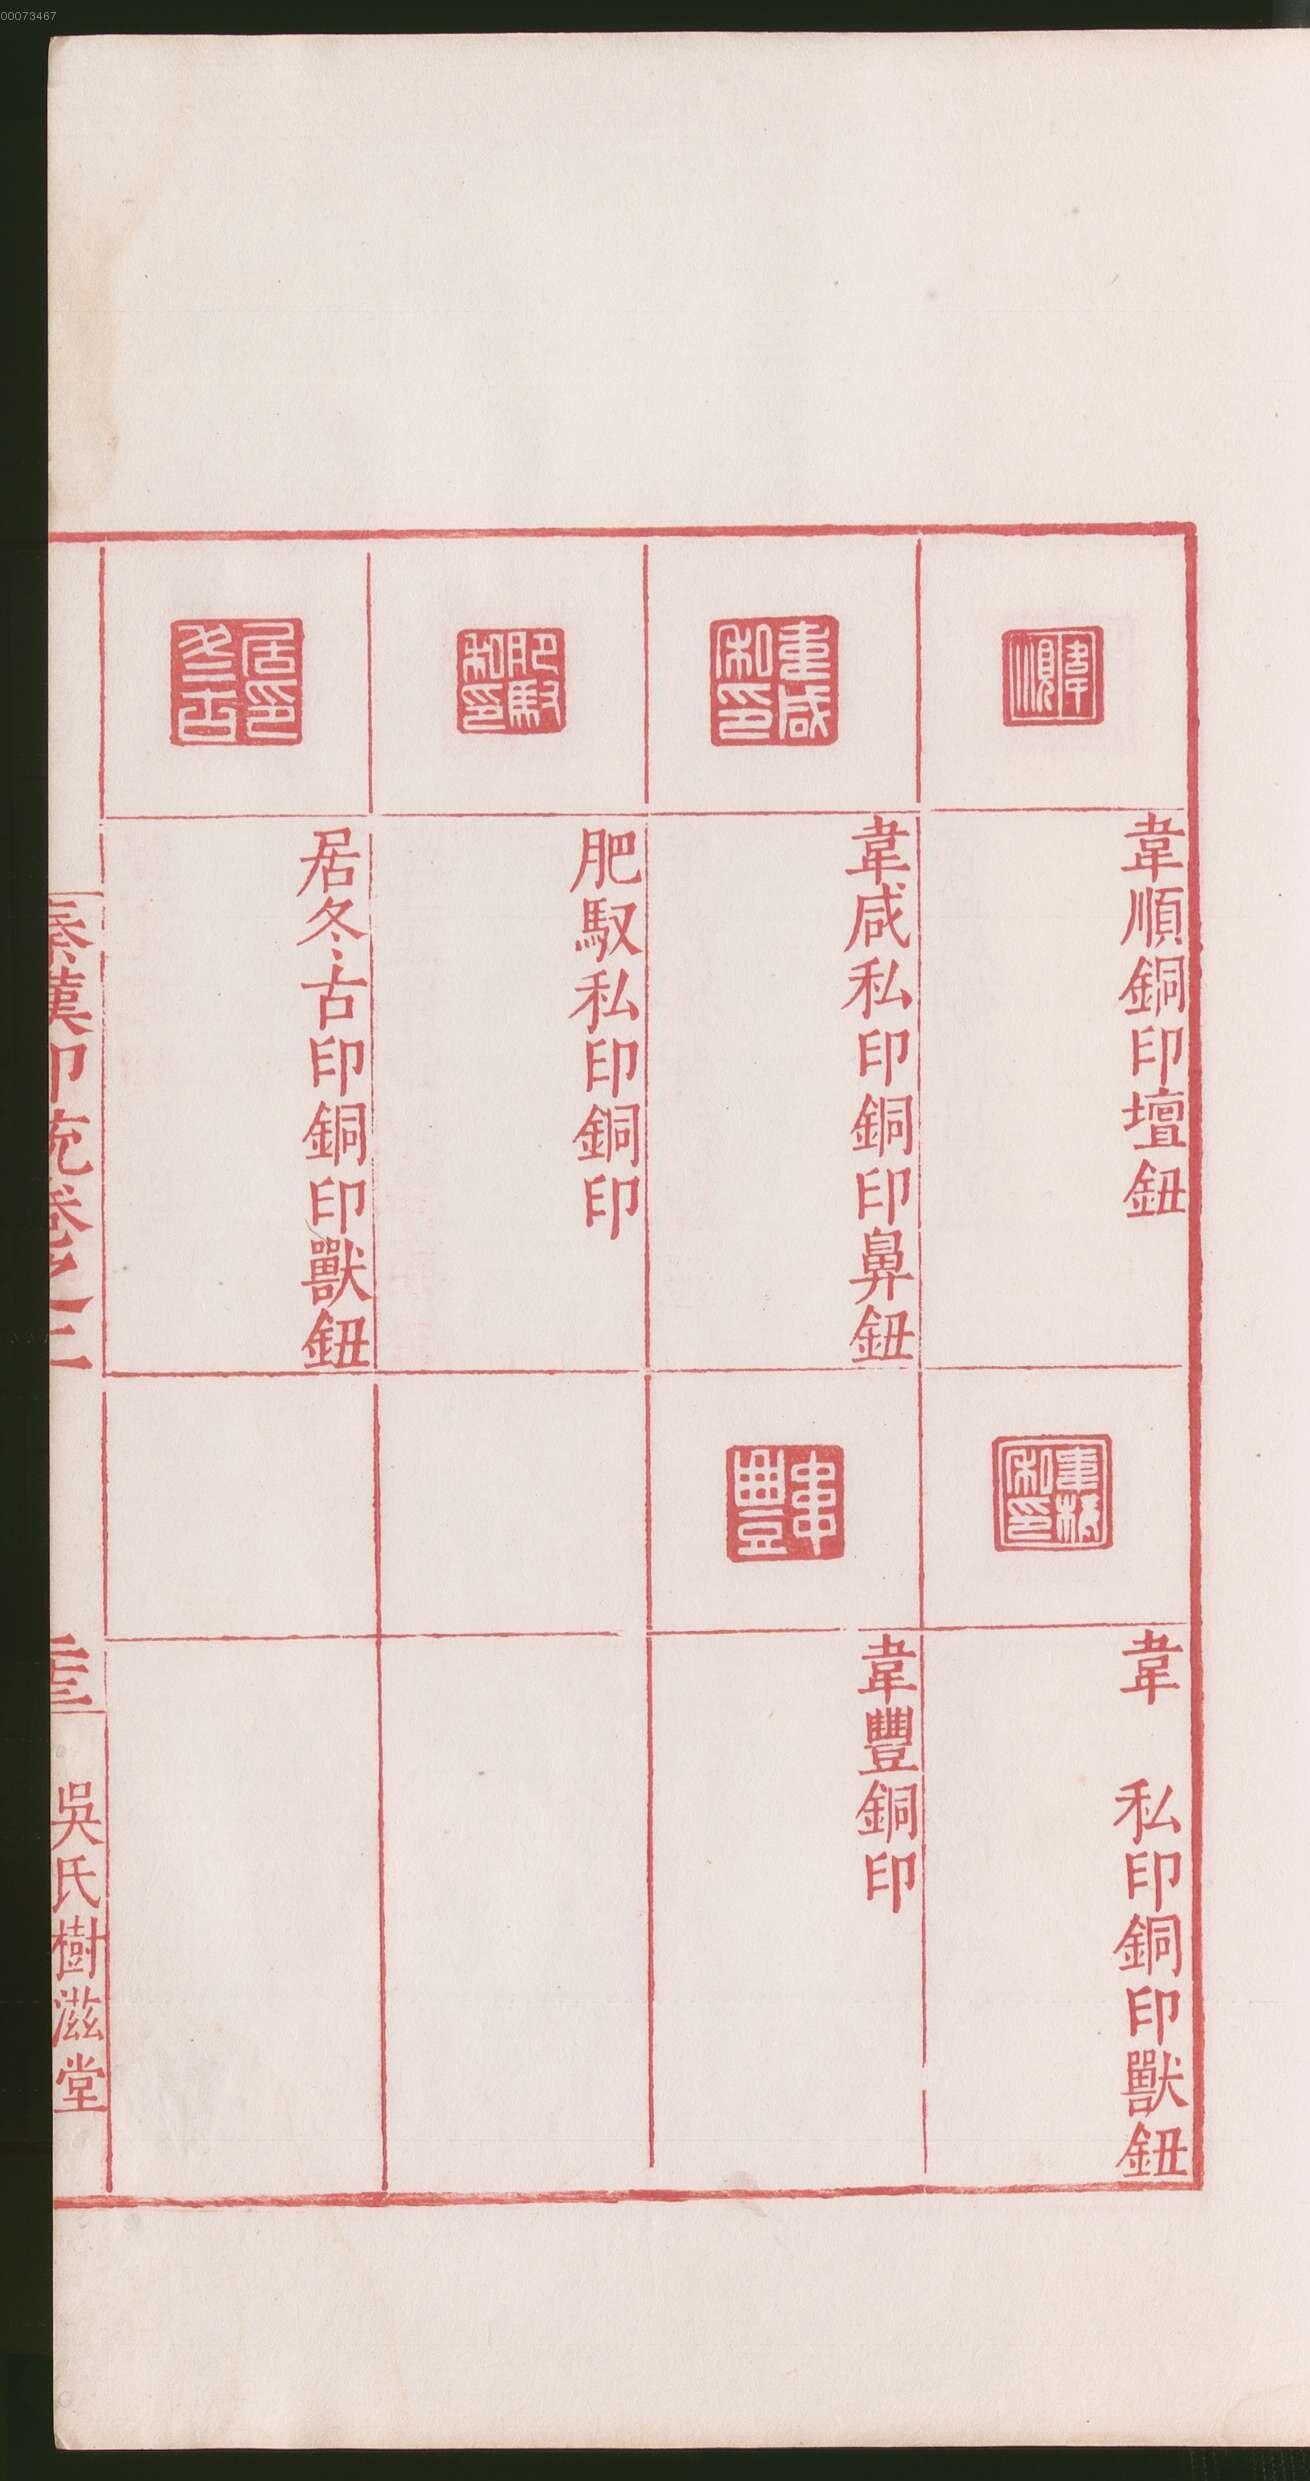 00073467
韋順
韋順銅印壇鈕
韋
私印
韋　私印銅印獸鈕
韋咸私印
韋咸私印銅印鼻鈕
韋豐
韋豐銅印
肥馭私印
肥馭私印銅印
居冬古印
居冬古印銅印獸鈕
秦漢印統卷之二
吳氏樹滋堂